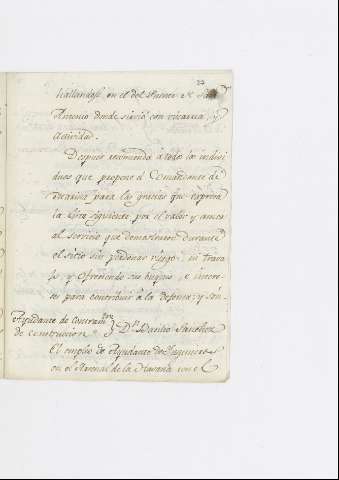 22
hallandose en el del Puente de San
Antonio donde sirvió con vizarria y
actividad.
Despues recomienda à todos los indivi
duos que propone el Comandante de
Marina para las gracias que expresa
la lista siguiente por el valor y amor
al servicio que demostraron durante
el sitio sin perdonar riesgo, ni traba
jo, y ofreciendo sus buques, e intere-
ses para contribuir à la defensa; y son.
Ayudante de Contram.tre
de construccion } Dn. Santos Sanchez
El empleo de Ayudante de Ingeniero
en el Arsenal de la Havana con el